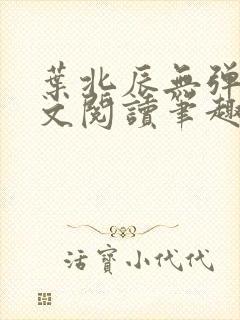 葉北辰無彈
文閱讀筆趣
活寶小代代